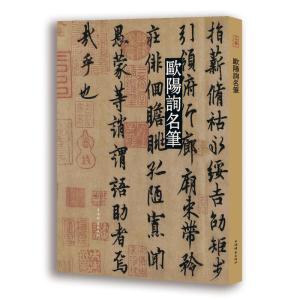 指薪脩祜永綏吉劭矩步
引領府仰廊廟束帶矜
莊俳佪瞻眺孤陋寡聞
愚蒙等誚謂語助者焉
哉乎也
歐陽詢名筆
歐陽詢名筆